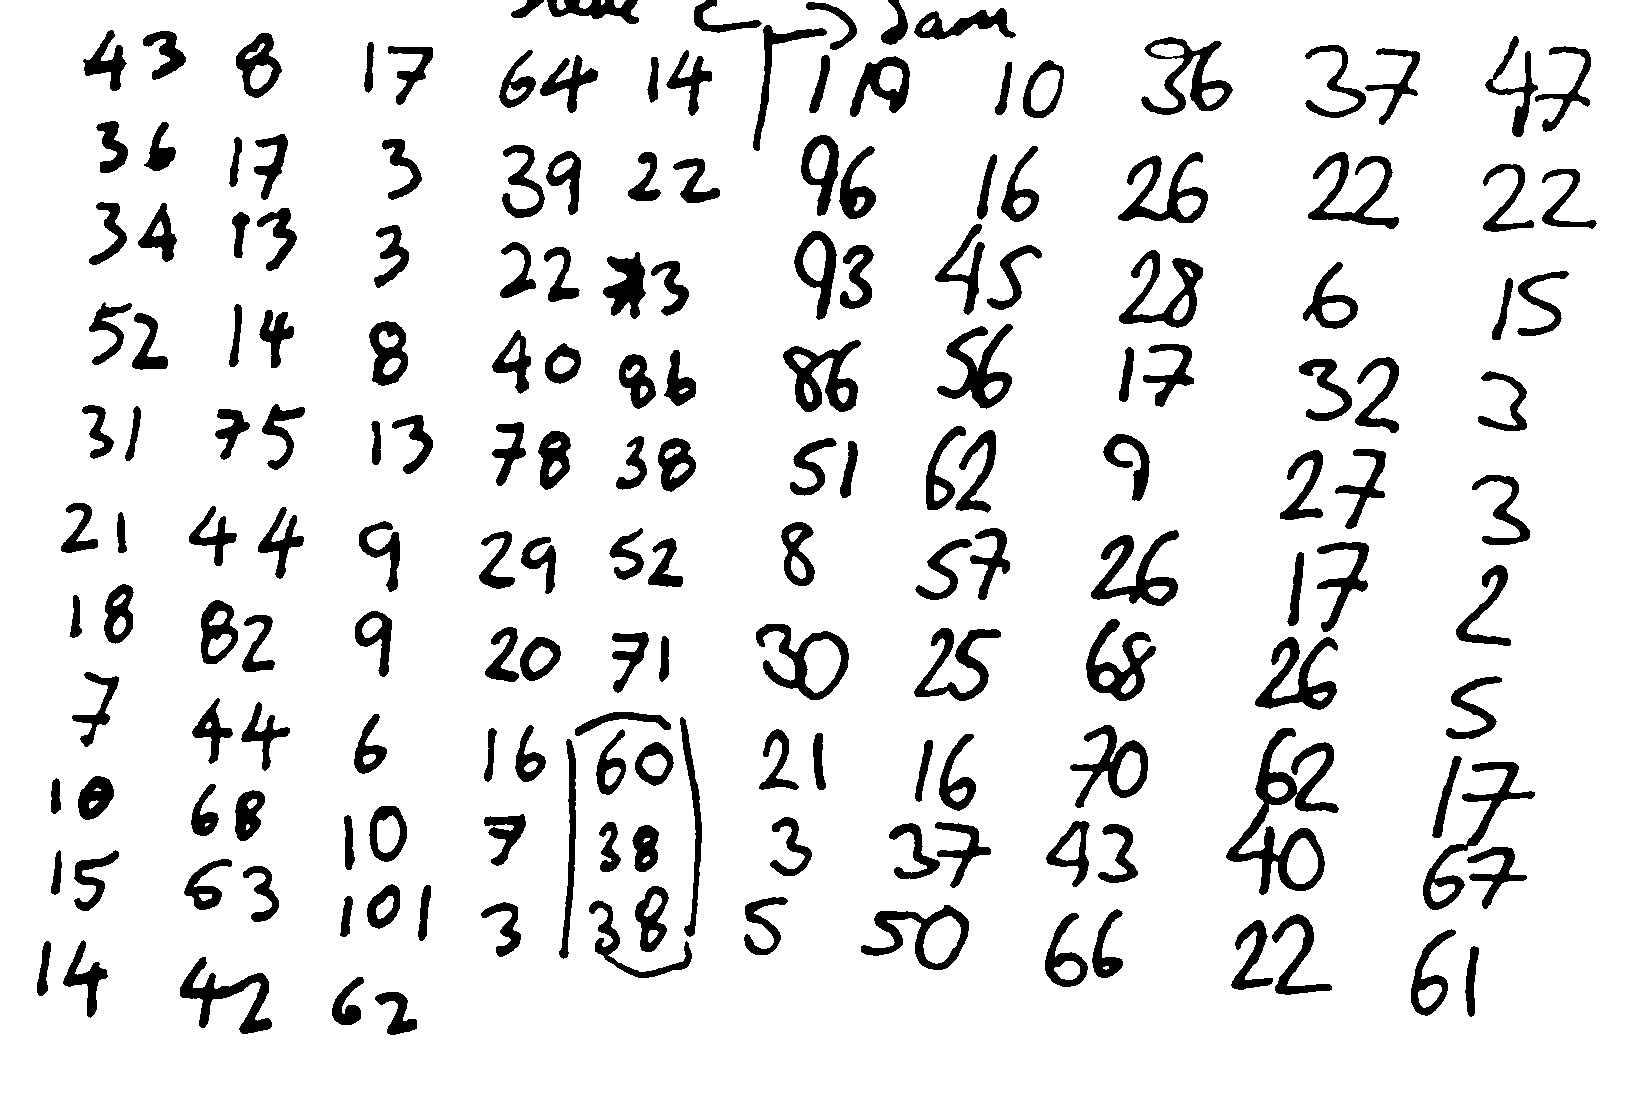 Sam
43 8 17 64 14 119 10 36 37 47
36 17 3 39 22 96 16 26 22 22
34 13 3 22 3 93 45 28 6 15
52 14 8 40 86 86 56 17 32 3
31 75 13 78 38 51 62 9 27 3
21 44 9 29 52 8 57 26 17 2
18 82 9 20 71 30 25 68 26 5
7 44 6 16 60 21 16 70 62 17
10 68 10 7 38 3 37 43 40 67
15 63 101 3 38 5 50 66 22 61
14 42 62